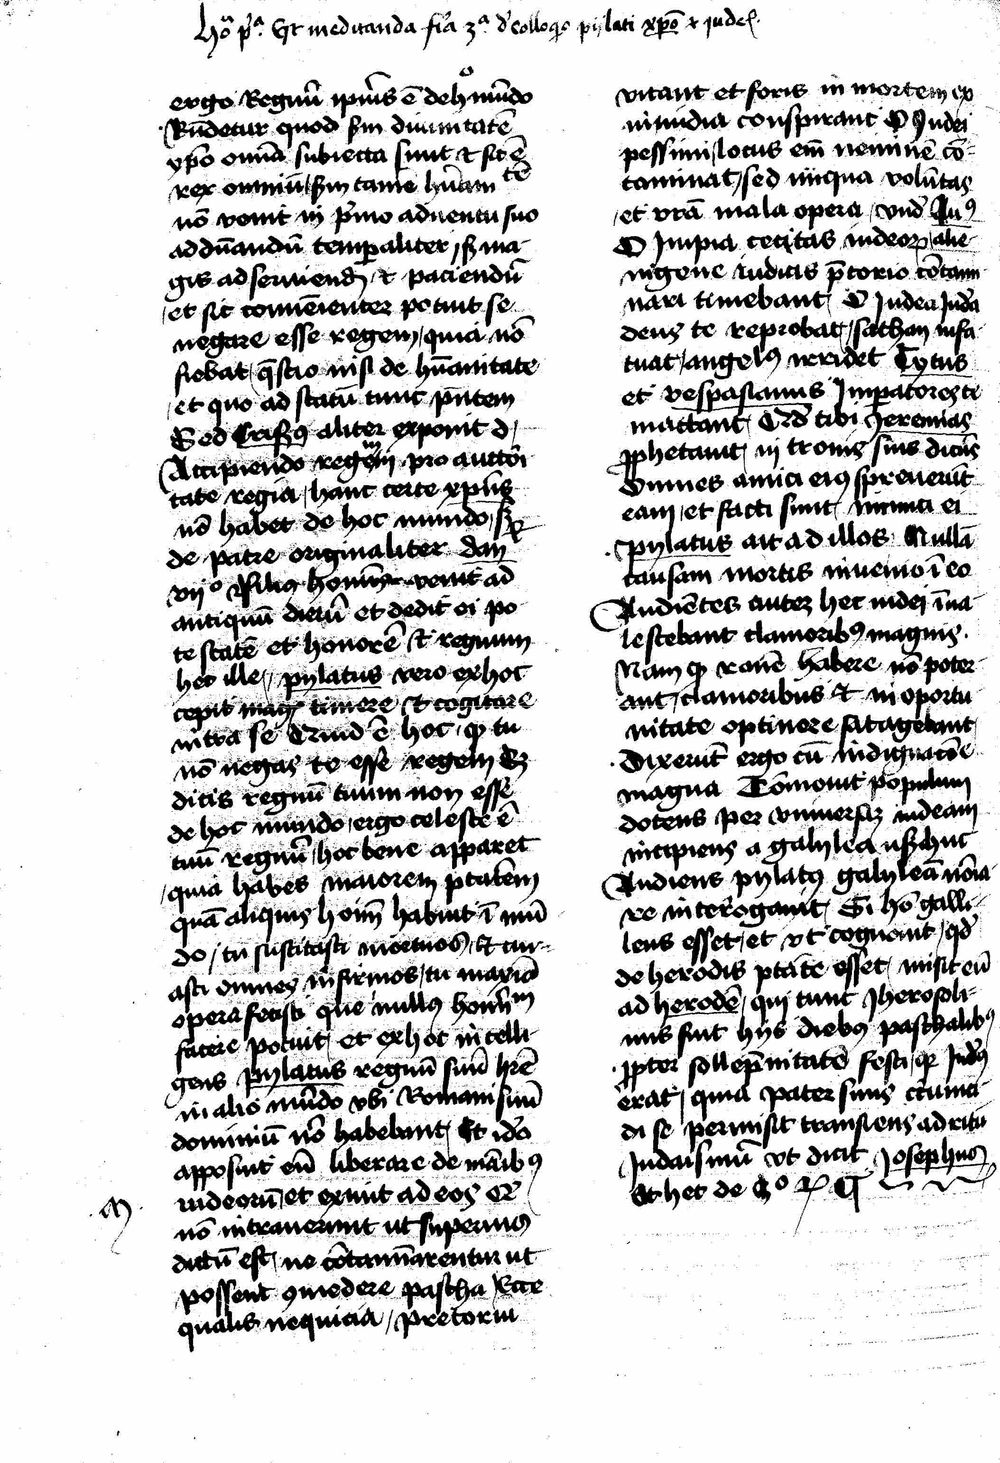 Hoª pª. Et meditanda fīa 3ª de colloqio pylati xpō et iudeꝭ.
ergo Regnū ipiꝰ ē de hº mūdo
Rn̄detur quod scdm diuinitatē
xpō omīa subiecta sunt et sic ē
rex omniū scdm tamē hūanitatē
nō venit in pīmo aduentu suo
ad dn̄andū temporaliter sꝫ ma
gis ad seruiendū et paciendū
et sic conuēienter potuit se
negare esse regem quia nō
fiebat qstio nisi de hūanitate
et quo ad statū tunc pn̄tem
Sed Crisꝰ aliter exponit d
Accipiendo regnum pro auctori
tate regia hanc certe xpūs
nō habet de hoc mundo sꝫ
de patre originaliter dan
vijº Filiꝰ homīs venit ad
antiquū dierū et dedit ei po
testatē et honorē et regnum
hec ille pylatus vero ex hoc
cepit magꝭ timere et cogitare
intra se Quid ē hoc qp tu
nō negas te esse regem Et
dicis regnū tuum non esse
de hoc mundo ergo celeste ē
tuū regnū hoc bene apparet
quia habes maiorem ptatem
quā aliquis hoīm habuit ī mū
do tu suscitasti mortuos et cur
asti omnes infirmos tu maxīa
opera fecisti que nullꝰ hominum
facere potuit et ex hoc intelli
gens pylatus regnū suū hr̄e
in alio mūdo vbi Romani suū
dominiū nō habebant Et ideo
apposuit eū liberare de manibꝰ
iudeorū et exiuit ad eos qr
nō intrauerunt ut superius
dictū est ne cōtamīarentur ut
possent ꝯmedere pascha Ecce
qualis nequicia pretoriū
vitant et foris in mortem ex
inuidia conspirant O Iudei
pessimi locus em̄ neminē cō
taminat sed iniqua volūtas
et vrā mala opera vnd Auꝰ
O Impia cecitas iudeorꝫ alie
nigene iudicis p̄torio cōtami
nari timebant O Iudea Iuda
deus te reprobat sathan infa
tuat angelꝰ irridet Tytus
et vespasianus Imperatores te
mactant Qꝺ tibi Jeremias
prophetauit in trenis suis dicēs
Omnes amici eiꝰ spreuerūt
eam et facti sunt inimici ei
pylatus ait ad illos Nullā
causam mortis inuenio ī eo
Audiētes autē hec iudei īua
lescebant clamoribꝰ magnis.
Nam qp rōnē habere nō poter
ant clamoribus et in oportu
nitate optinere satagebant
Dixerūt ergo cū indignacōe
magna Cōmouit populum
docens per vniuersā iudeam
incipiens a galylea usꝫ huc
Audiens pylatꝰ galyleā nōīa
re interogauit Si hō galli
leus esset et vt cognouit qd
de herodis ptāte esset misit eū
ad herodē qui tunc Iherosoli
mis fuit hijs diebꝰ paschalibꝰ
propter sollēpnitatē festi qr Iudeꝰ
erat quia pater suus circūci
di se permisit transiens ad ritū
Iudaismū vt dicit Josephus
Et hec de 2º
M